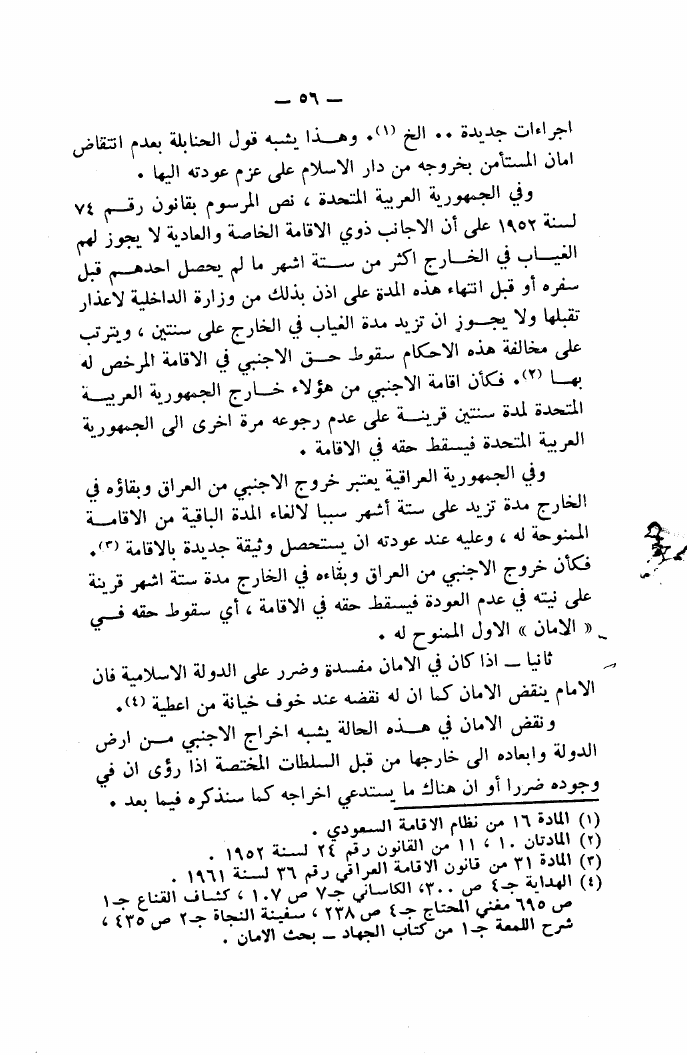 — ٥٦ —
اجراءات جديدة .. الخ (١). وهـــذا يشبه قول الحنابلة بعدم انتقاض
امان المستأمن بخروجه من دار الاسلام على عزم عودته اليها .
وفي الجمهورية العربية المتحدة ، نص المرسوم بقانون رقـــم ٧٤
لسنة ١٩٥٢ على أن الاجانب ذوي الاقامة الخاصة والعادية لا يجوز لهم
الغيـــاب في الخـــارج اكثر من ستـــة اشهر ما لم يحصل احدهـــم قبل
سفره أو قبل انتهاء هذه المدة على اذن بذلك من وزارة الداخلية لاعذار
تقبلها ولا يجـــوز ان تزيد مدة الغياب في الخارج على سنتين ، ويترتب
على مخالفة هذه الاحكام سقوط حـــق الاجنبي في الاقامة المرخص له
بهـــا (٢). فكأن اقامة الاجنبي من هؤلاء خـــارج الجمهورية العربيـــة
المتحدة لمدة سنتين قرينـــة على عدم رجوعه مرة اخرى الى الجمهورية
العربية المتحدة فيسقط حقه في الاقامة .
وفي الجمهورية العراقية يعتبر خروج الاجنبي من العراق وبقاؤه في
الخارج مدة تزيد على ستة أشهر سببا لالغاء المدة الباقية من الاقامـــة
الممنوحة له ، وعليه عند عودته ان يستحصل وثيقة جديدة بالاقامة (٣).
فكأن خروج الاجنبي من العراق وبقاءه في الخارج مدة ستة اشهر قرينة
على نيته في عدم العودة فيسقط حقه في الاقامة ، أي سقوط حقه فـــي
« الامان » الاول الممنوح له .
ثانيا — اذا كان في الامان مفسدة وضرر على الدولة الاسلامية فان
الامام ينقض الامان كما ان له نقضه عند خوف خيانة من اعطية (٤).
ونقض الامان في هـــذه الحالة يشبه اخراج الاجنبي مـــن ارض
الدولة وابعاده الى خارجها من قبل السلطات المختصة اذا رؤى ان في
وجوده ضررا أو ان هناك ما يستدعي اخراجه كما سنذكره فيما بعد .
(١) المادة ١٦ من نظام الاقامة السعودي .
(٢) المادتان ١٠ ، ١١ من القانون رقم ٢٤ لسنة ١٩٥٢ .
(٣) المادة ٣١ من قانون الاقامة العراقي رقم ٣٦ لسنة ١٩٦١ .
(٤) الهداية جـ٤ ص ٣٠٠، الكاساني جـ٧ ص ١٠٧ ، كشاف القناع جـ١
ص ٦٩٥ مغني المحتاج جـ٤ ص ٢٣٨ ، سفينة النجاة جـ٢ ص ٤٣٥ ،
شرح اللمعة جـ١ من كتاب الجهاد — بحث الامان .